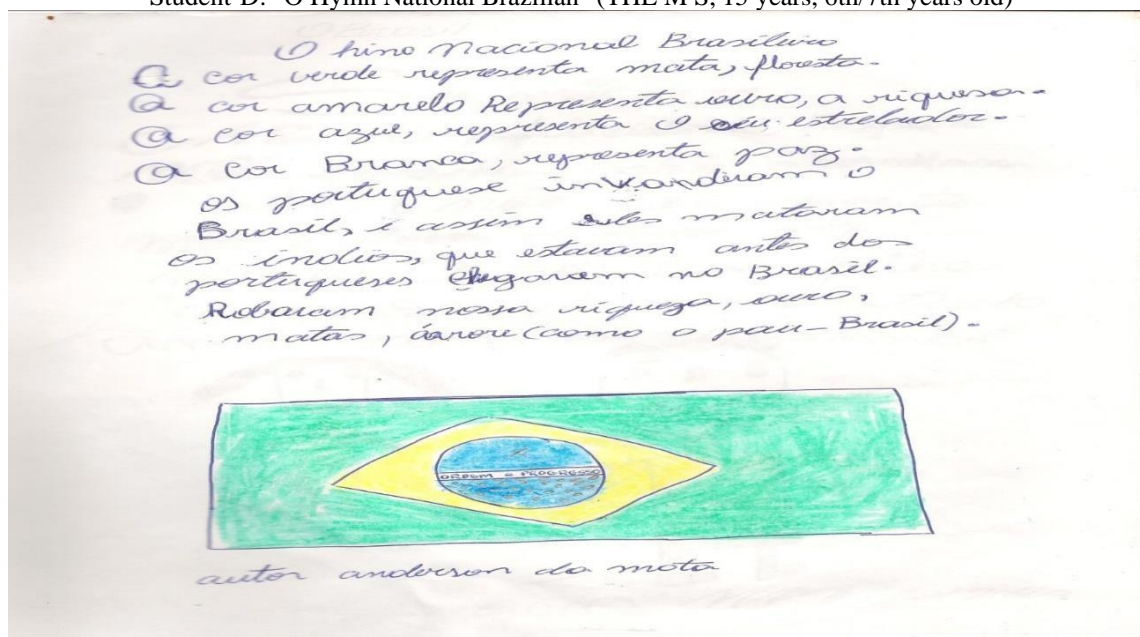 Student D: "O Hymn National Brazilian" (THE M S, 15 years, 6th/7th years old)
O hino Nacional Brasileiro
A cor verde representa mata, floresta.
A cor amarelo Representa ouro, a riquesa.
A cor azul, representa o céu, estrelador.
A cor Branca, representa paz.
os portuguese invandiram o
Brasil, i assim eles mataram
os índios, que estavam antes dos
portugueses chegaram no Brasil.
Robaram nossa riqueza, ouro,
matas, árvore (como o pau-Brasil).
ORDEM E PROGRESSO
autor anderson da mota